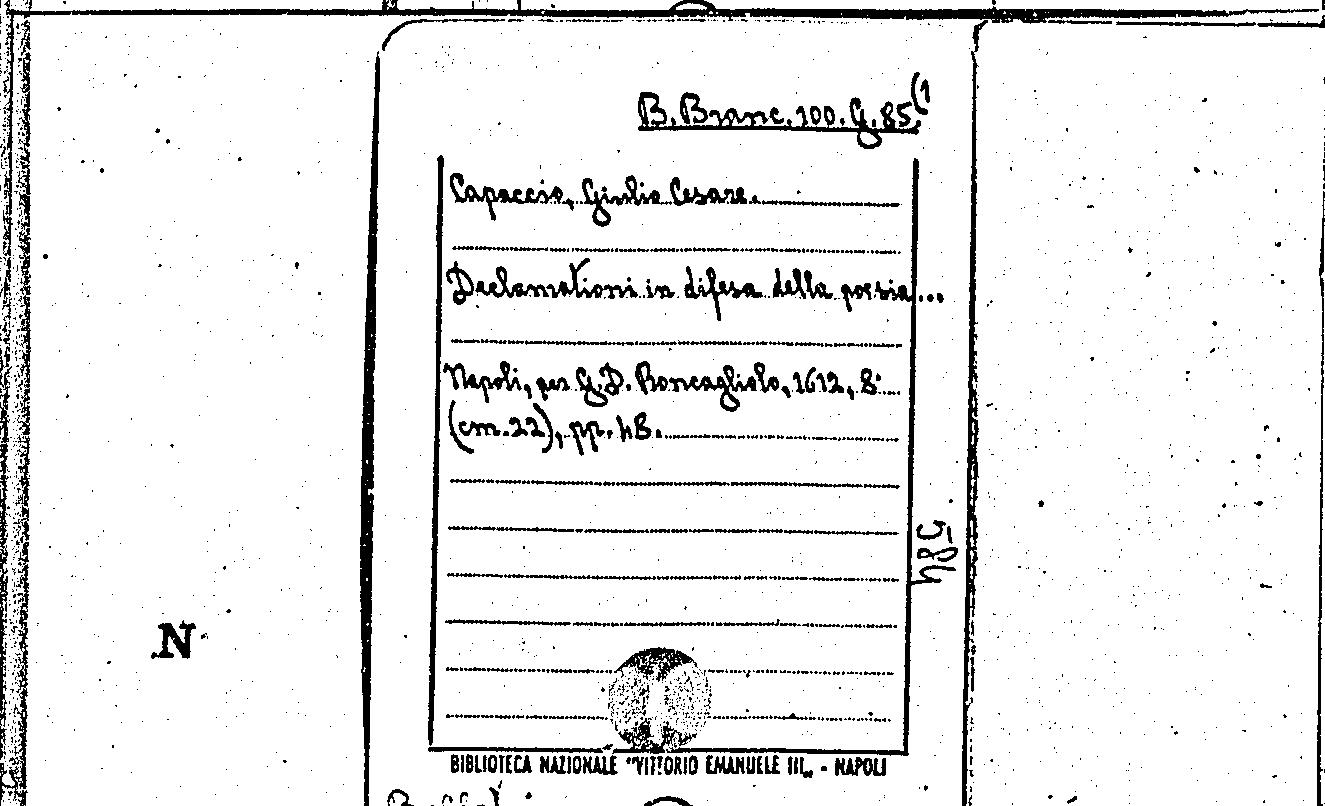 B. Branc. 100. G. 85(1
Capaccio, Giulio Cesare.
Declamationi in difesa della poesia...
Napoli, per G.D. Roncagliolo, 1612, 8°
(cm. 22), pp. 48.
584
N
BIBLIOTECA NAZIONALE "VITTORIO EMANUELE III„ - NAPOLI